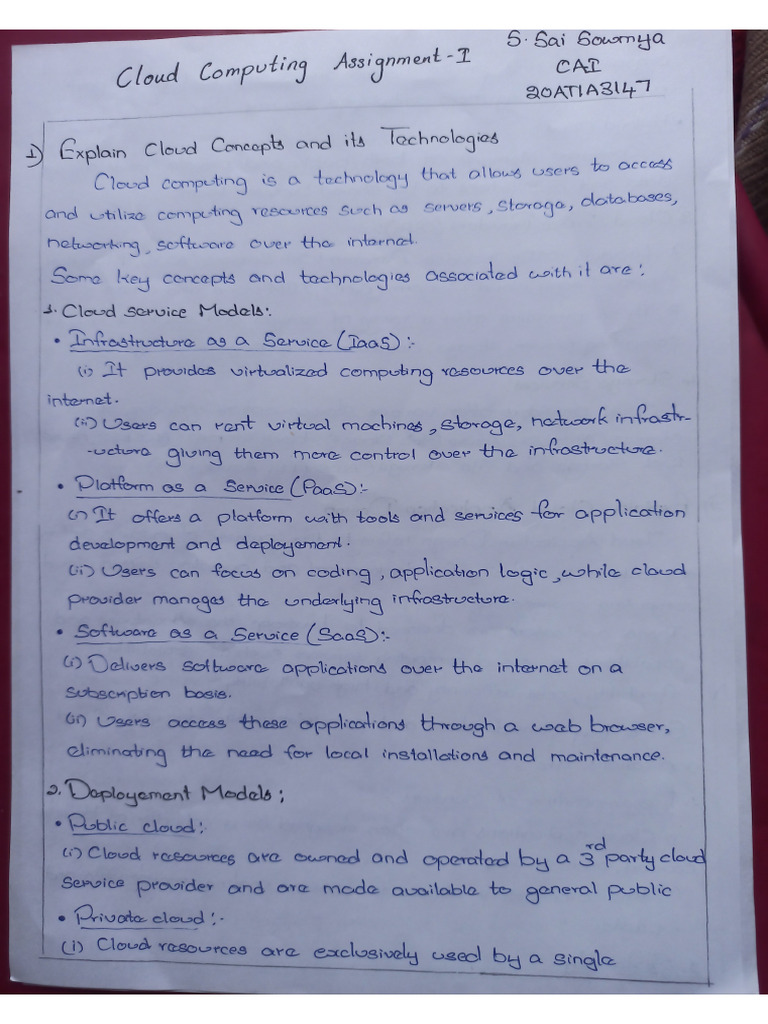 Cloud Computing Assignment-I
S. Sai Sowmya
CAI
20AT1A3147
1) Explain Cloud Concepts and its Technologies
Cloud computing is a technology that allows users to access
and utilize computing resources such as servers, storage, databases,
networking, software over the internet.
Some key concepts and technologies associated with it are:
1. Cloud Service Models:
• Infrastructure as a Service (IaaS):-
(i) It provides virtualized computing resources over the
internet.
(ii) Users can rent virtual machines, storage, network infrastr-
-ucture giving them more control over the infrastructure.
• Platform as a Service (PaaS):-
(i) It offers a platform with tools and services for application
development and deployement.
(ii) Users can focus on coding, application logic, while cloud
provider manages the underlying infrastructure.
• Software as a Service (SaaS):-
(i) Delivers software applications over the internet on a
subscription basis.
(ii) Users access these applications through a web browser,
eliminating the need for local installations and maintenance.
2. Deployement Models:
• Public cloud:-
(i) Cloud resources are owned and operated by a 3rd party cloud
service provider and are made available to general public
• Private cloud:-
(i) Cloud resources are exclusively used by a single